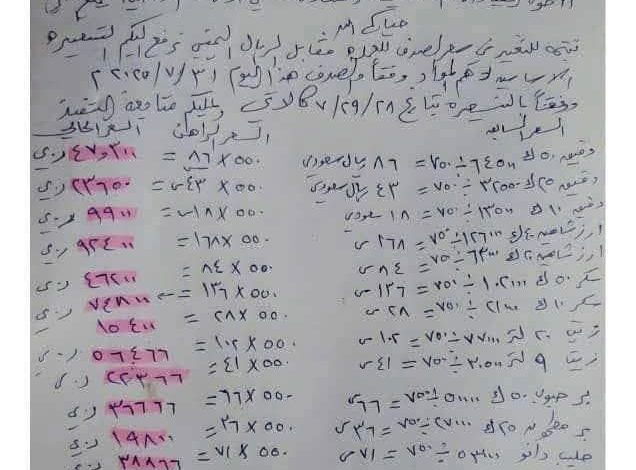 حياكم الله
نتيجة للتغير في سعر الصرف للعملة مقابل الريال اليمني نرفع اليكم التسعيره
الاساسية لاهم المواد وفقاً والصرف هذا اليوم ٣١ / ٧ / ٢٠٢٥ م
وفقاً بالتسعيره بتاريخ ٢٨ / ٢٩ / ٧ كالاتي وعليكم متابعة التنفيذ
السعر السابقه السعر الراهن السعر الحالي
دقيق ٥٠ ك ٦٤٥٠٠ ÷ ٧٥٠ = ٨٦ ريال سعودي ٨٦ × ٥٥٠ = ٤٧٣٠٠ ر.ي
دقيق ٢٥ ك ٣٢٥٠٠ ÷ ٧٥٠ = ٤٣ ريال سعودي ٤٣ × ٥٥٠ = ٢٣٦٥٠ ر.ي
دقيق ١٠ ك ١٣٥٠٠ ÷ ٧٥٠ = ١٨ سعودي ١٨ × ٥٥٠ = ٩٩٠٠ ر.ي
ارز ٤٠ ك ١٢٦٠٠٠ ÷ ٧٥٠ = ١٦٨ س ١٦٨ × ٥٥٠ = ٩٢٤٠٠ ر.ي
ارز ٢٠ ك ٦٣٠٠٠ ÷ ٧٥٠ = ٨٤ س ٨٤ × ٥٥٠ = ٤٦٢٠٠ ر.ي
سكر ٥٠ ك ١٠٢٠٠٠ ÷ ٧٥٠ = ١٣٦ س ١٣٦ × ٥٥٠ = ٧٤٨٠٠ ر.ي
سكر ١٠ ك ٢١٠٠٠ ÷ ٧٥٠ = ٢٨ س ٢٨ × ٥٥٠ = ١٥٤٠٠
زيت ٢٠ لتر ٧٧٠٠٠ ÷ ٧٥٠ = ١٠٢ س ١٠٢ × ٥٥٠ = ٥٦٤٦٦ ر.ي
زيت ٩ لتر ٣٠٥٠٠ ÷ ٧٥٠ = ٤١ س ٤١ × ٥٥٠ = ٢٢٣٦٦ ر.ي
بر حبوب ٥٠ ك ٥٠٠٠٠ ÷ ٧٥٠ = ٦٦ س ٦٦ × ٥٥٠ = ٣٦٦٦٦ ر.ي
بر مطحون ٢٥ ك ٢٧٠٠٠ ÷ ٧٥٠ = ٣٦ س ٣٦ × ٥٥٠ = ١٩٨٠٠ ر.ي
حليب دانو ٥٣٠٠٠ ÷ ٧٥٠ = ٧١ س ٧١ × ٥٥٠ = ٣٨٨٦٦ ر.ي